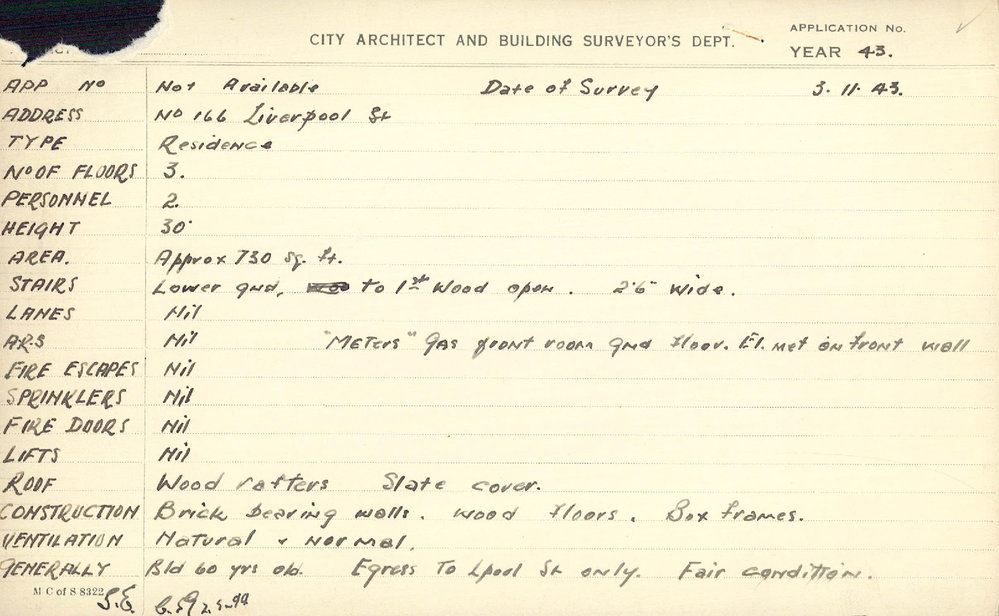 CITY ARCHITECT AND BUILDING SURVEYOR'S DEPT. APPLICATION No.
YEAR 43.
APP No Not Available Date of Survey 3. 11. 43.
ADDRESS No 166 Liverpool St
TYPE Residence
No OF FLOORS 3.
PERSONNEL 2.
HEIGHT 30'
AREA. Approx 730 sq. ft.
STAIRS Lower gnd, to 1st Wood open. 2'6" wide.
LANES Nil
A.R.S Nil "METers" Gas front room gnd floor. El. met on front wall
FIRE ESCAPES Nil
SPRINKLERS Nil
FIRE DOORS Nil
LIFTS Nil
ROOF Wood rafters Slate cover.
CONSTRUCTION Brick bearing walls. Wood floors. Box frames.
VENTILATION Natural & Normal.
GENERALLY Bld 60 yrs old. Egress To Lpool St only. Fair condition.
M C of S 8322 S.E.